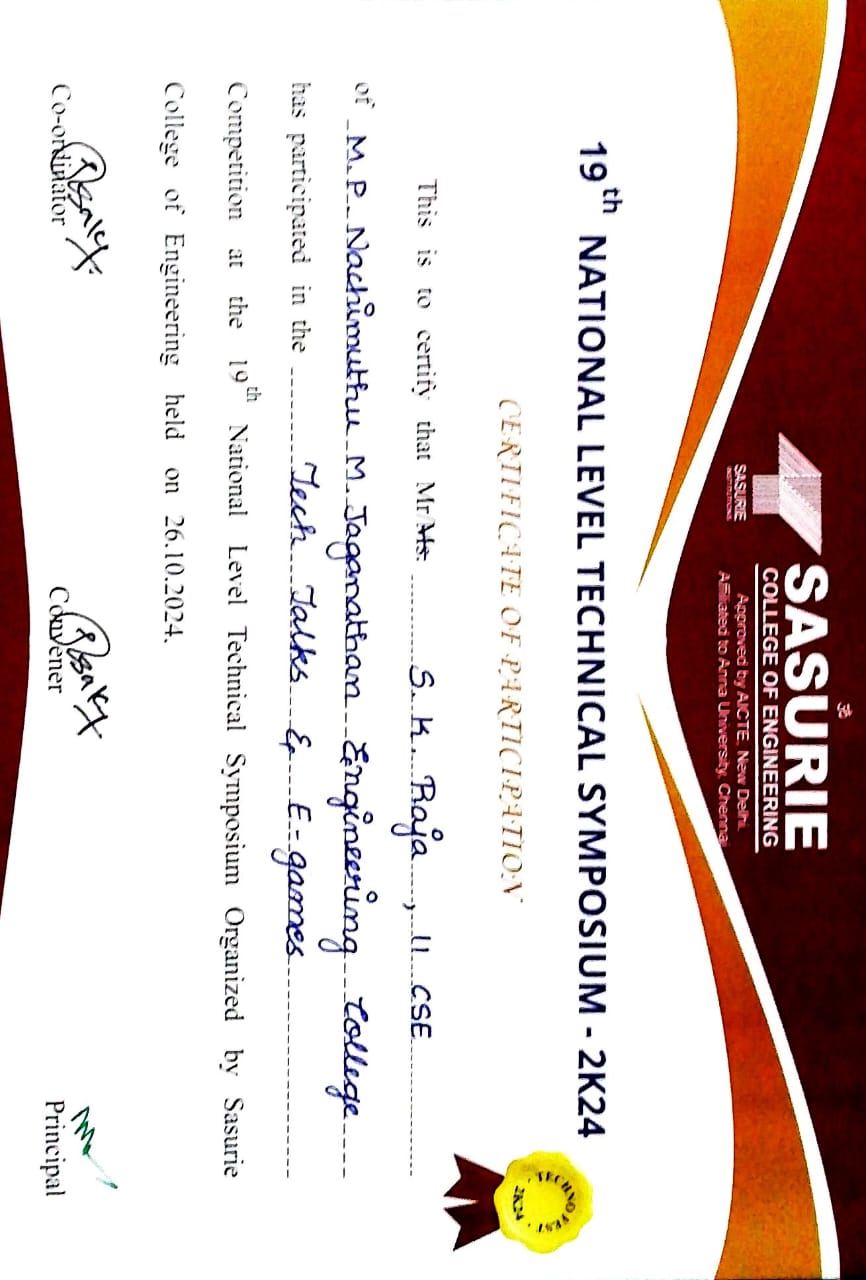 ॐ
SASURIE
COLLEGE OF ENGINEERING
Approved by AICTE, New Delhi,
Affiliated to Anna University, Chennai
SASURIE
INSTITUTIONS
19th NATIONAL LEVEL TECHNICAL SYMPOSIUM - 2K24
CERTIFICATE OF PARTICIPATION
TECHNO FEST
2K24
This is to certify that Mr/Ms. S. K. Raja, II CSE
of M.P. Nachimuthu M. Jaganathan Engineering College
has participated in the Tech Talks & E-games
Competition at the 19th National Level Technical Symposium Organized by Sasurie
College of Engineering held on 26.10.2024.
Co-ordinator
Convener
Principal